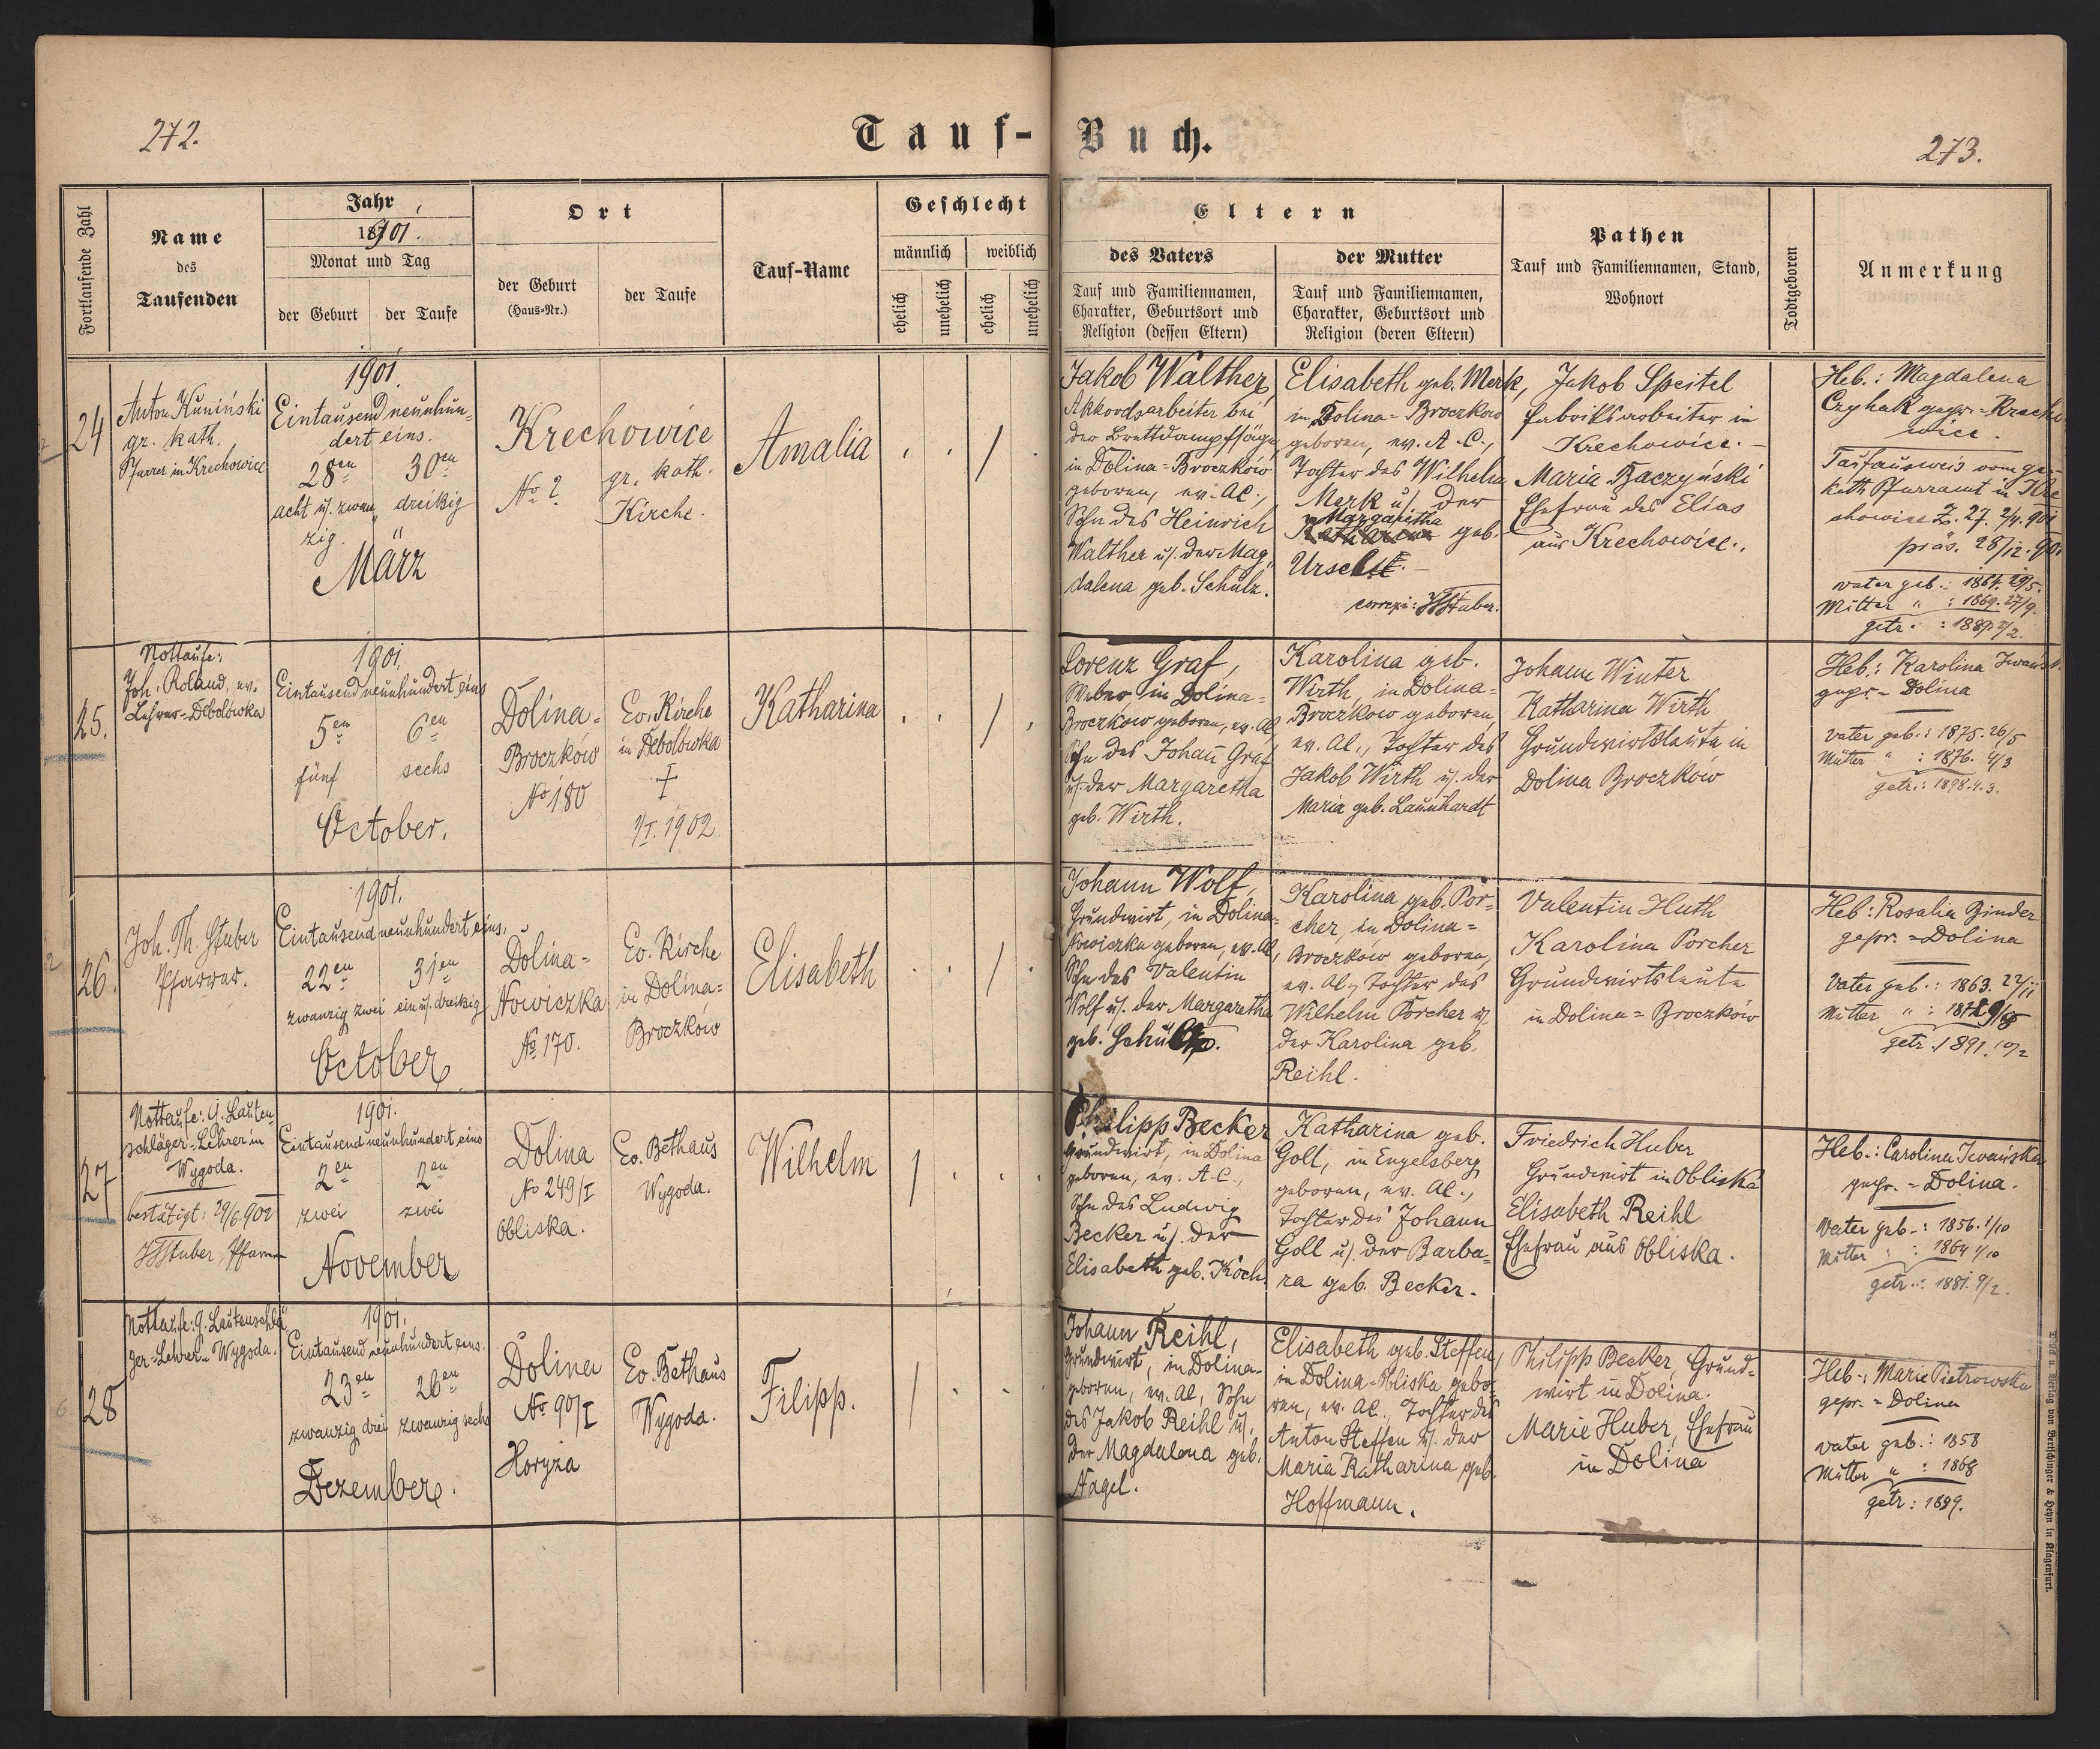 272.
Tauf-Buch.
273.
Fortlaufende Zahl
Name
des
Taufenden
Jahr
1901.
Monat und Tag
der Geburt
der Taufe
Ort
der Geburt
(Haus-Nr.)
der Taufe
Tauf-Name
Geschlecht
männlich
weiblich
ehelich
unehelich
ehelich
unehelich
Eltern
des Vaters
Tauf und Familiennamen,
Charakter, Geburtsort und
Religion (dessen Eltern)
der Mutter
Tauf und Familiennamen,
Charakter, Geburtsort und
Religion (deren Eltern)
Pathen
Tauf und Familiennamen, Stand,
Wohnort
Todtgeboren
Anmerkung
24
Anton Kuniński
gr. kath.
Pfarrer in Krechowice
1901.
Eintausend neunhun-
dert eins.
28en
acht u. zwan
zig.
30en
dreißig
März
Krechowice
No ?
gr. kath.
Kirche.
Amalia
. . / .
Jakob Walther,
Akkordarbeiter bei
der Brettdampfsäge
in Dolina=Broczków
geboren, ev. AC.,
Sohn des Heinrich
Walther u. der Mag
dalena geb. Schulz.
Elisabeth geb. Merk,
in Dolina=Broczkow
geboren, ev. A.C.,
Tochter des Wilhelm
Merk u. der
Margaretha
geb.
correxi: JThStuber.
Jakob Speitel
Fabriksarbeiter in
Krechowice. —
Maria Baczyński
Ehefrau des Elias
aus Krechowice.
Heb.: Magdalena
Czyhak gepr.=Krecho
wice.
Taufausweis vom gr.-
kath Pfarramt in Kre
chowice Z. 27. 2/4. 901
präs. 28/12. 901
Vater geb.: 1864. 29/5.
Mutter " : 1869. 27/9.
getr. : 1889. 2/2.
25.
Nottaufe:
Joh. Roland, ev.
Lehrer=Debolówka
1901.
Eintausend neunhundert eins
5en
fünf
6en
sechs
October.
Dolina=
Broczków
No 180
Ev. Kirche
in Debolówka
†
1/I. 1902.
Katharina
. . / .
Lorenz Graf,
Weber, in Dolina=
Broczkow geboren, ev. AC
Sohn des Johann Graf
u. der Margaretha
geb. Wirth.
Karolina geb.
Wirth, in Dolina=
Broczkow geboren,
ev. AC., Tochter des
Jakob Wirth u. der
Maria geb. Launhardt
Johann Winter
Katharina Wirth
Grundwirtsleute in
Dolina Broczków
Heb.: Karolina
gepr.= Dolina
Vater geb.: 1875. 26/5
Mutter " : 1876. 4/3
getr.: 1898. 4. 3.
26.
Joh. Th. Stuber
Pfarrer.
1901.
Eintausend neunhundert eins.
22en
zwanzig zwei
31en
ein u. dreißig
October
Dolina=
Nowiczka
No 170.
Ev. Kirche
in Dolina=
Broczków
Elisabeth
. . / .
Johann Wolf,
Grundwirt, in Dolina=
Nowiczka geboren, ev. AC,
Sohn des Valentin
Wolf u. der Margaretha
geb.
Karolina geb. Por=
cher, in Dolina=
Broczkow geboren,
ev. AC., Tochter des
Wilhelm Porcher u.
der Karolina geb.
Reihl.
Valentin Huth
Karolina Porcher
Grundwirtsleute
in Dolina=Broczków
Heb: Rosalia Binder
gepr.=Dolina
Vater geb.: 1863. 22/11
Mutter " :
getr. 1891. 10/2
27
Nottaufe: G. Lauten-
schläger=Lehrer in
Wygoda.
bestätigt: 29/6. 902
JThStuber, Pfarrer
1901.
Eintausend neunhundert eins
2en
zwei
2en
zwei
November
Dolina
No 249/I
Obliska.
Ev. Bethaus
Wygoda.
Wilhelm
/ . . .
Philipp Becker
Grundwirt, in Dolina
geboren, ev. A.C.,
Sohn des Ludwig
Becker u. der
Elisabeth geb. Koch.
Katharina geb.
Goll, in Engelsberg
geboren, ev. AC.,
Tochter des Johann
Goll u. der Barba=
ra geb. Becker.
Friedrich Huber
Grundwirt in Obliska
Elisabeth Reihl
Ehefrau aus Obliska.
Heb.: Carolina Iwańska
gepr.=Dolina.
Vater geb.: 1856. 1/10
Mutter " : 1864 4/10
getr.: 1881. 9/2.
28
Nottaufe: G. Lautenschlä
ger=Lehrer=Wygoda.
1901.
Eintausend neunhundert eins.
23en
zwanzig drei
26en
zwanzig sechs
Dezember.
Dolina
No 90/I
Horyza
Ev. Bethaus
Wygoda.
Filipp.
/ . . .
Johann Reihl,
Grundwirt, in Dolina
geboren, ev. AC, Sohn
des Jakob Reihl u.
der Magdalena geb.
Nagel.
Elisabeth geb. Steffen,
in Dolina-Obliska gebo=
ren, ev. AC., Tochter des
Anton Steffen u. der
Maria Katharina geb.
Hoffmann.
Philipp Becker, Grund=
wirt in Dolina.
Marie Huber, Ehefrau
in Dolina
Heb.: Marie Pietrowska
gepr.=Dolina
Vater geb.: 1858
Mutter " : 1868
getr: 1889.
Druck u. Verlag von Bertschinger & Heyn in Klagenfurt.